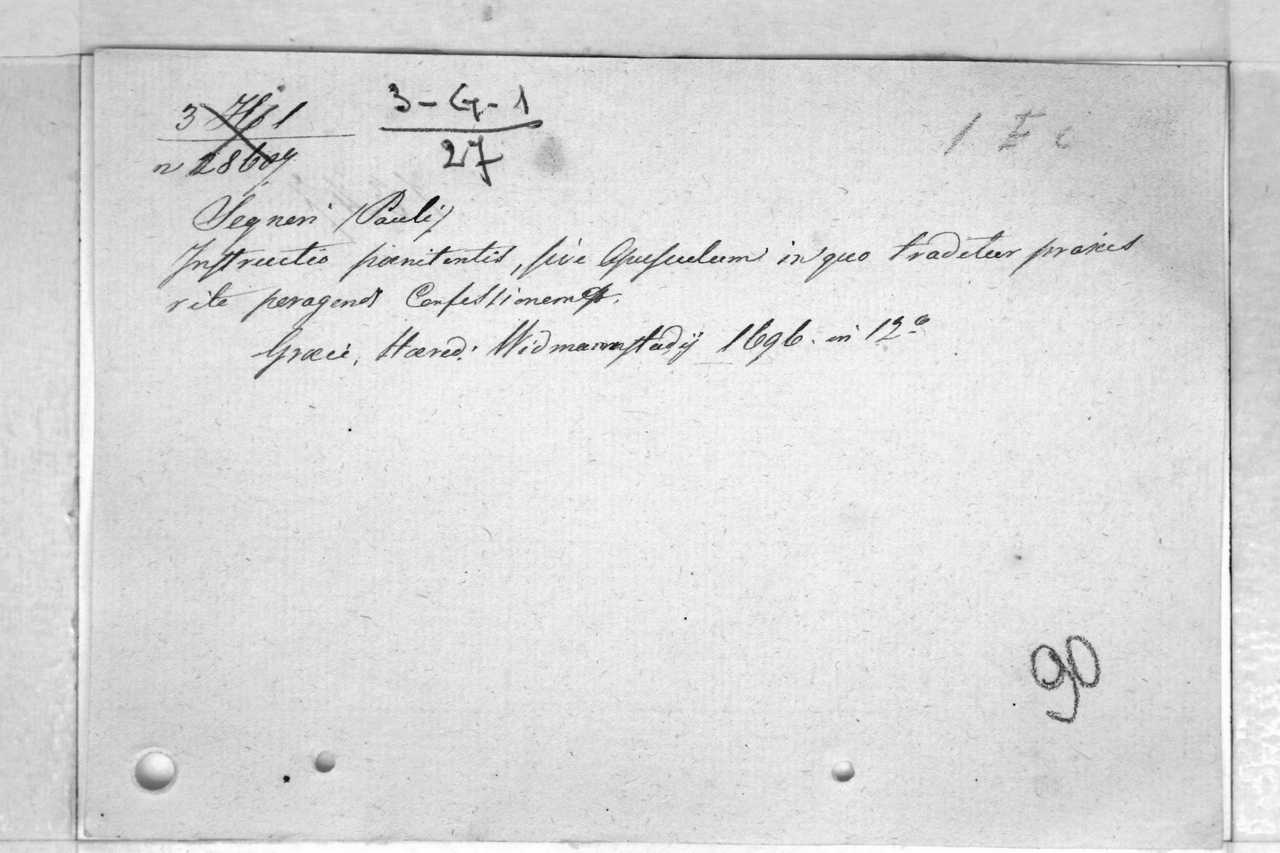 3 H 1
n 28607
3-G-1
27
1 E c
Segneri (Pauli)
Instructio pœnitentis, sive Opusculum in quo traditur praxis
rite peragendi Confessionem
Græcii, Hæred: Widmannstadij 1696. in 12º
90